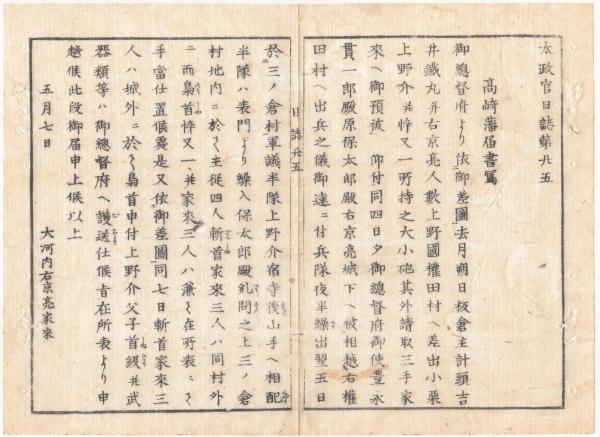 太政官日誌第廿五
高崎藩届書寫
御總督府ゟ依御差圖去月朔日板倉主計頭吉
井鐵丸并右京亮人數上野國權田村へ差出小栗
上野介并悴又一所持之大小砲其外請取三手家
來へ御預被　仰付同四日夕御總督府御使豊永
貫一郎殿原保太郎殿右京亮城下へ被相越右權
田村へ出兵之儀御達ニ付兵隊夜半繰出翌五日
日誌廿五
一
於三ノ倉村軍議半隊上野介宿寺後山手へ相配
半隊ハ表門ゟ繰入保太郎殿糺問之上三ノ倉
村地内ニ於て主從四人斬首家來三人ハ同村外
ニ而梟首悴又一并家來三人ハ兼て在所表ニて
手當仕置候處是又依御差圖同七日斬首家來三
人ハ城外ニ於て梟首申付上野介父子首級并武
器類等ハ御總督府へ護送仕候旨在所表ゟ申
越候此段御届申上候以上
五月七日
大河内右京亮家來